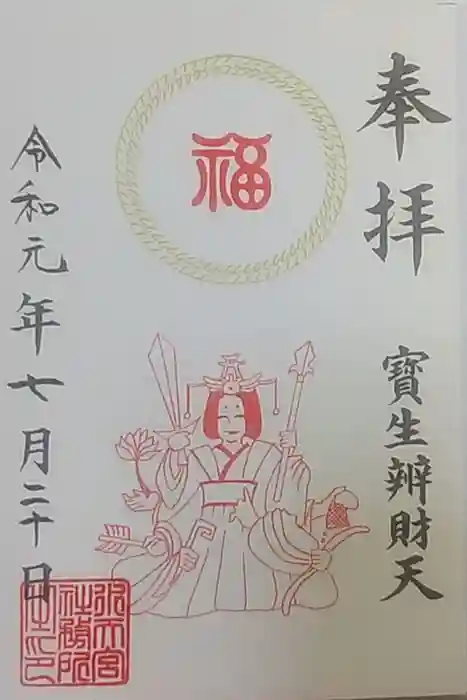 奉拝
寶生辨財天
福
令和元年七月二十日